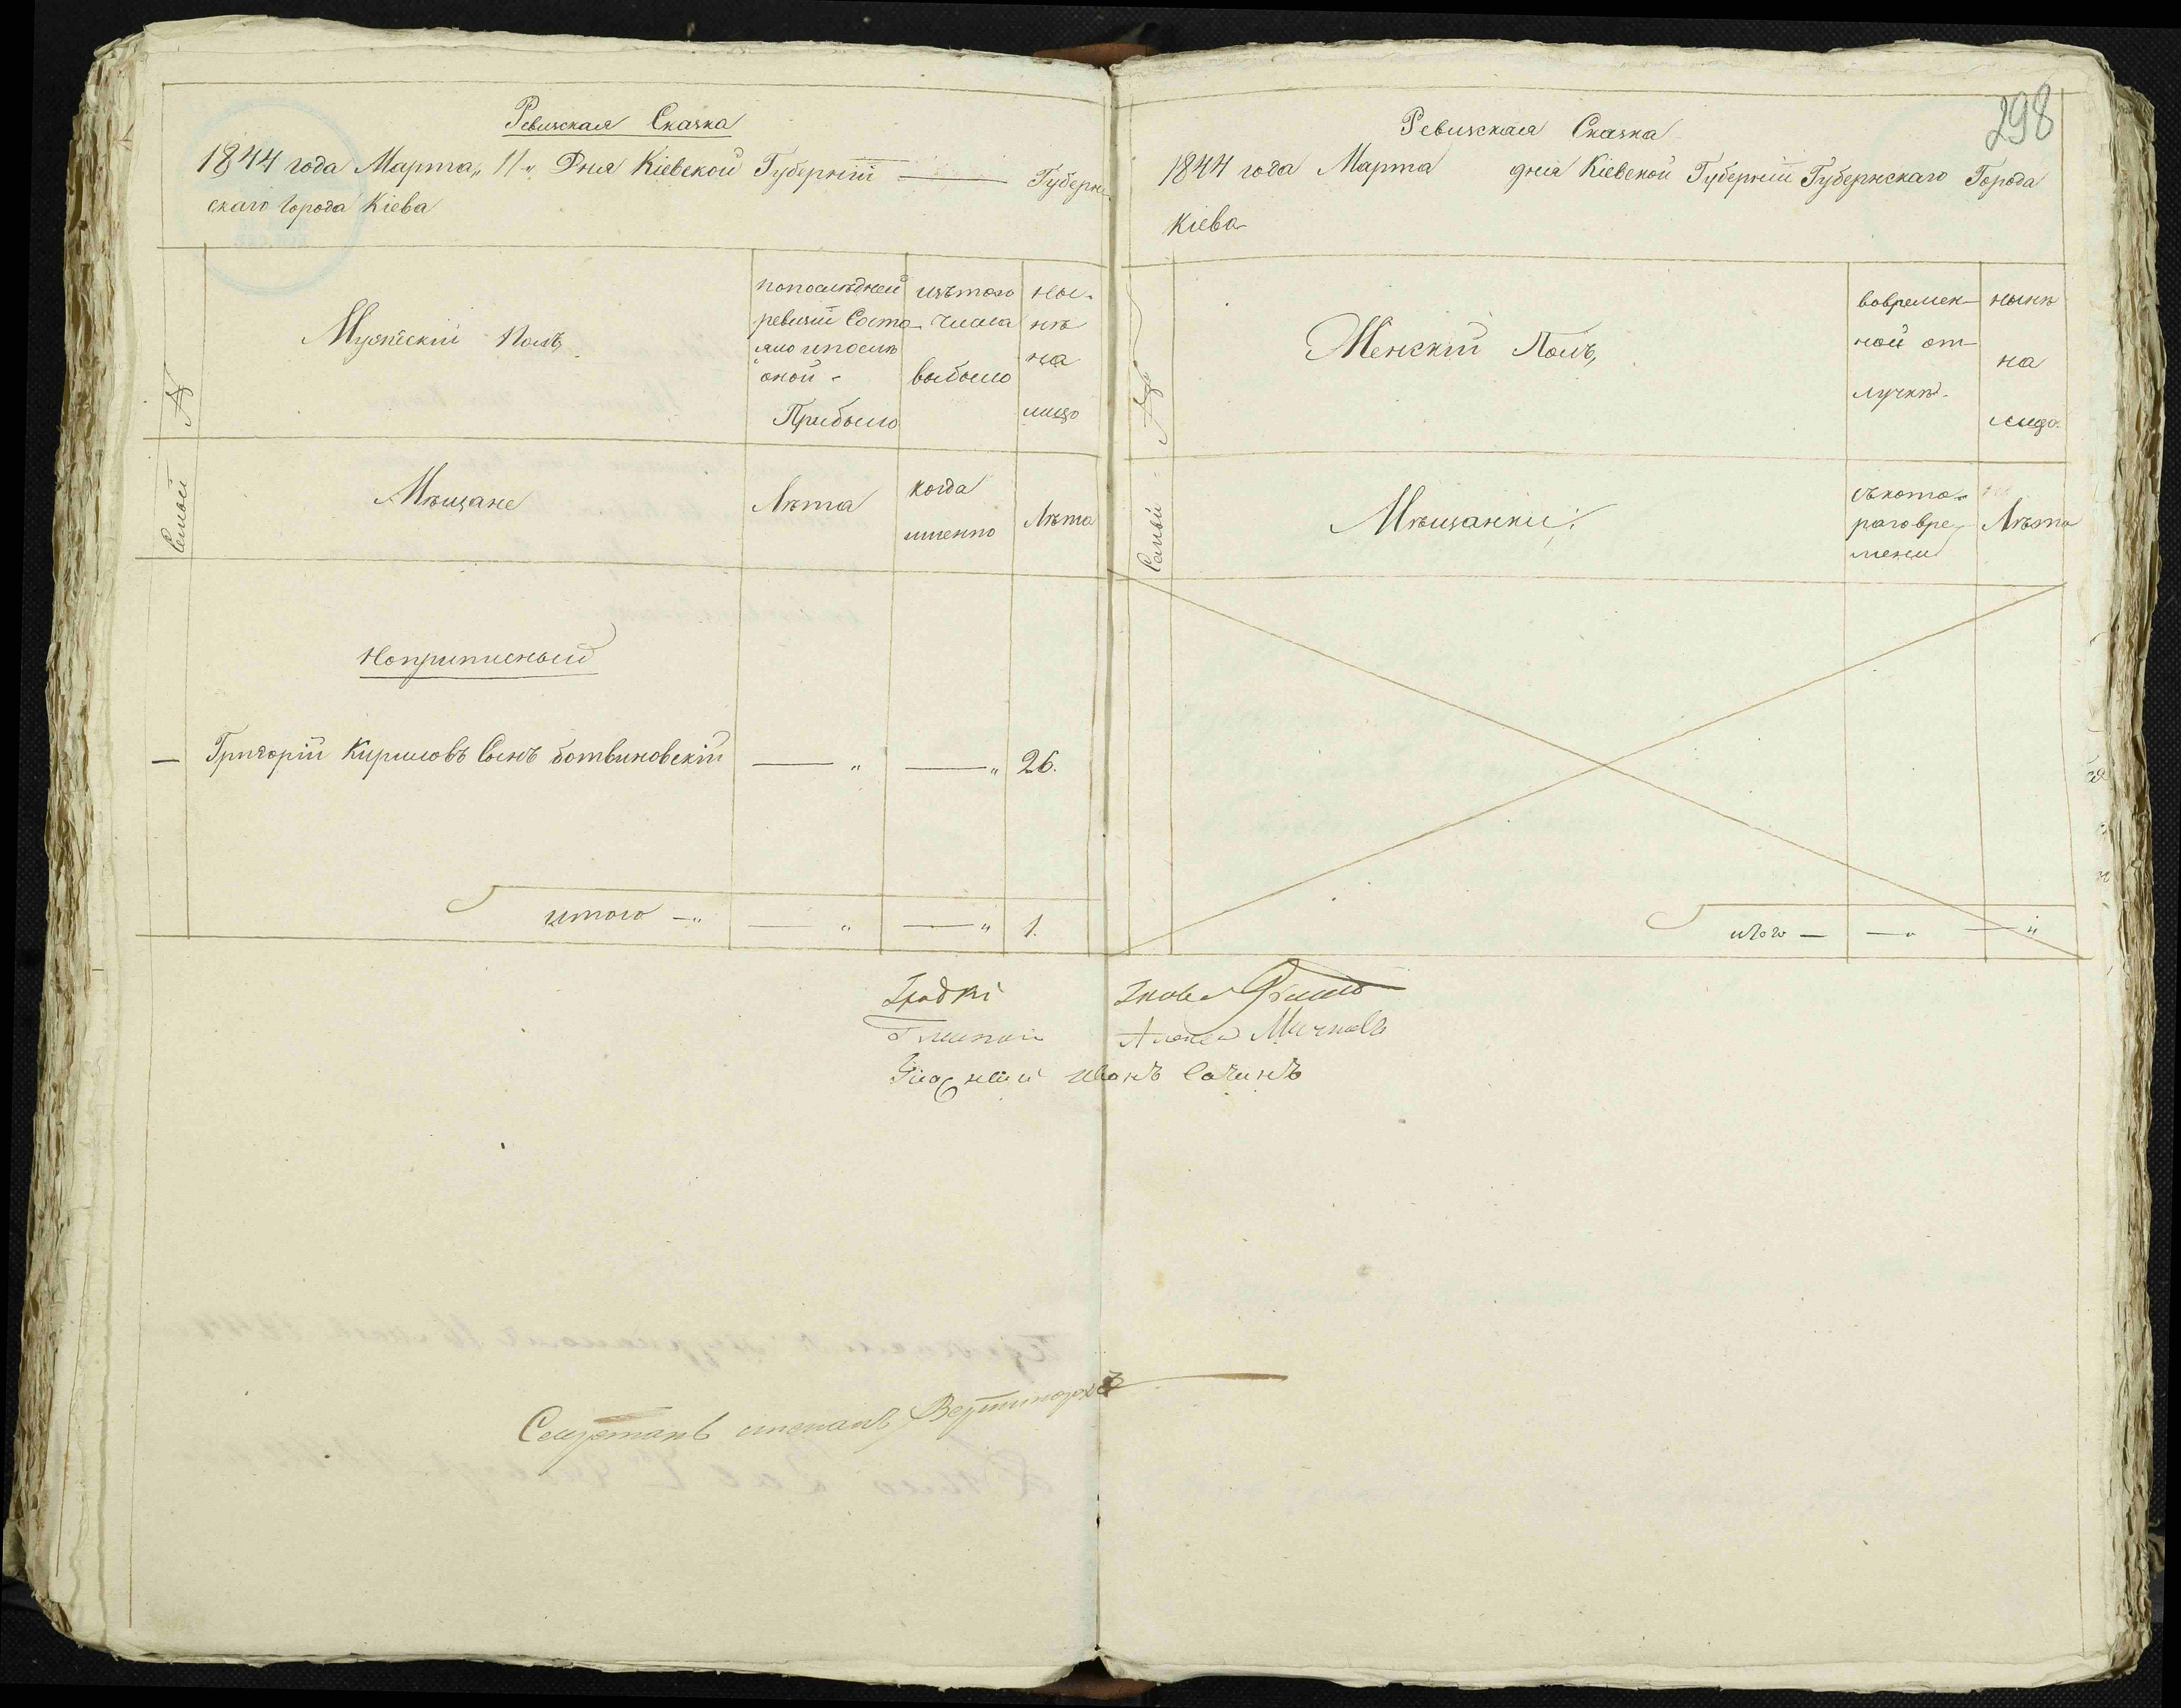 Ревизская Сказка
1844 года Марта „11„ Дня Кіевской Губерніи — Губернс
скаго Города Кіева
№
Семьи
Мужескій Полъ
попоследней
ревизіи Состо
яло ипослѣ
оной -
Прибыло
изътого
числа
выбыло
ны-
нѣ
на
лицо
Мѣщане
Лѣта
когда
именно
Лѣта
Ноприписный
— Григорій Кириловъ Сынъ Ботвиновскій — „ — „ 26.
итого — „ — „ — „ 1.
298
Ревизская Сказка
1844 года Марта дня Кіевской Губерніи Губернскаго Города
Кіева
№
Семьи
Женскій Полъ,
вовремен-
ной от-
лучкѣ.
нынѣ
на
лицо.
Мѣщанки:
съкото-
раговре-
мени
Лѣта
итого — — „ — „
Гласный Иванъ